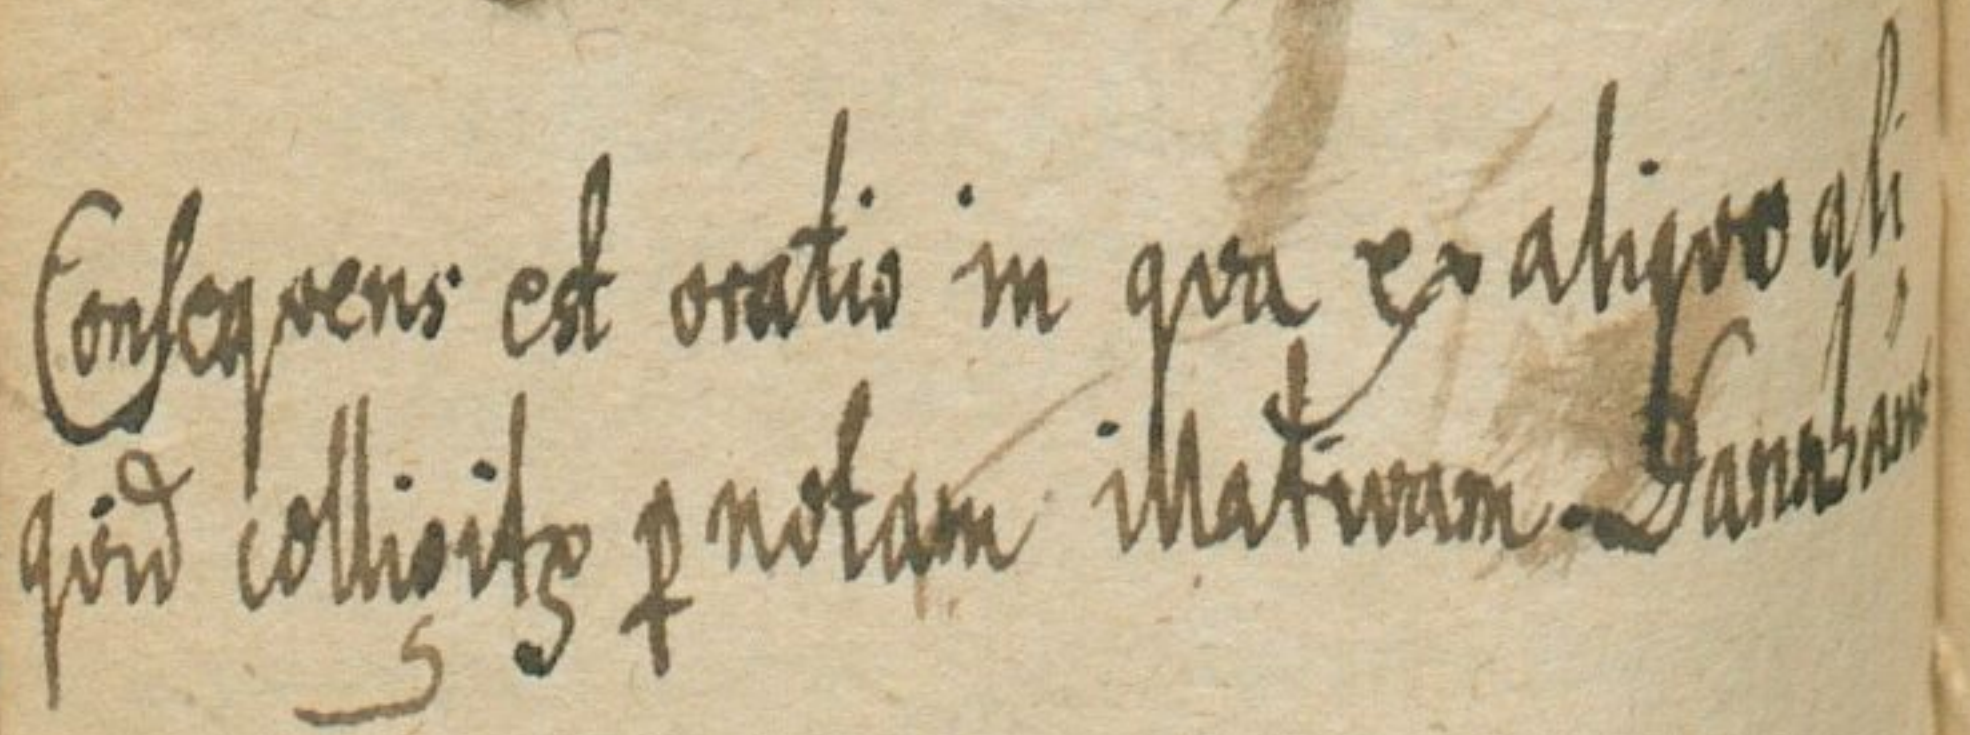 Consequens est oratio in qva ex aliqvo ali
qvid colligitꝛ ꝑ notam illativam. Dannhaur